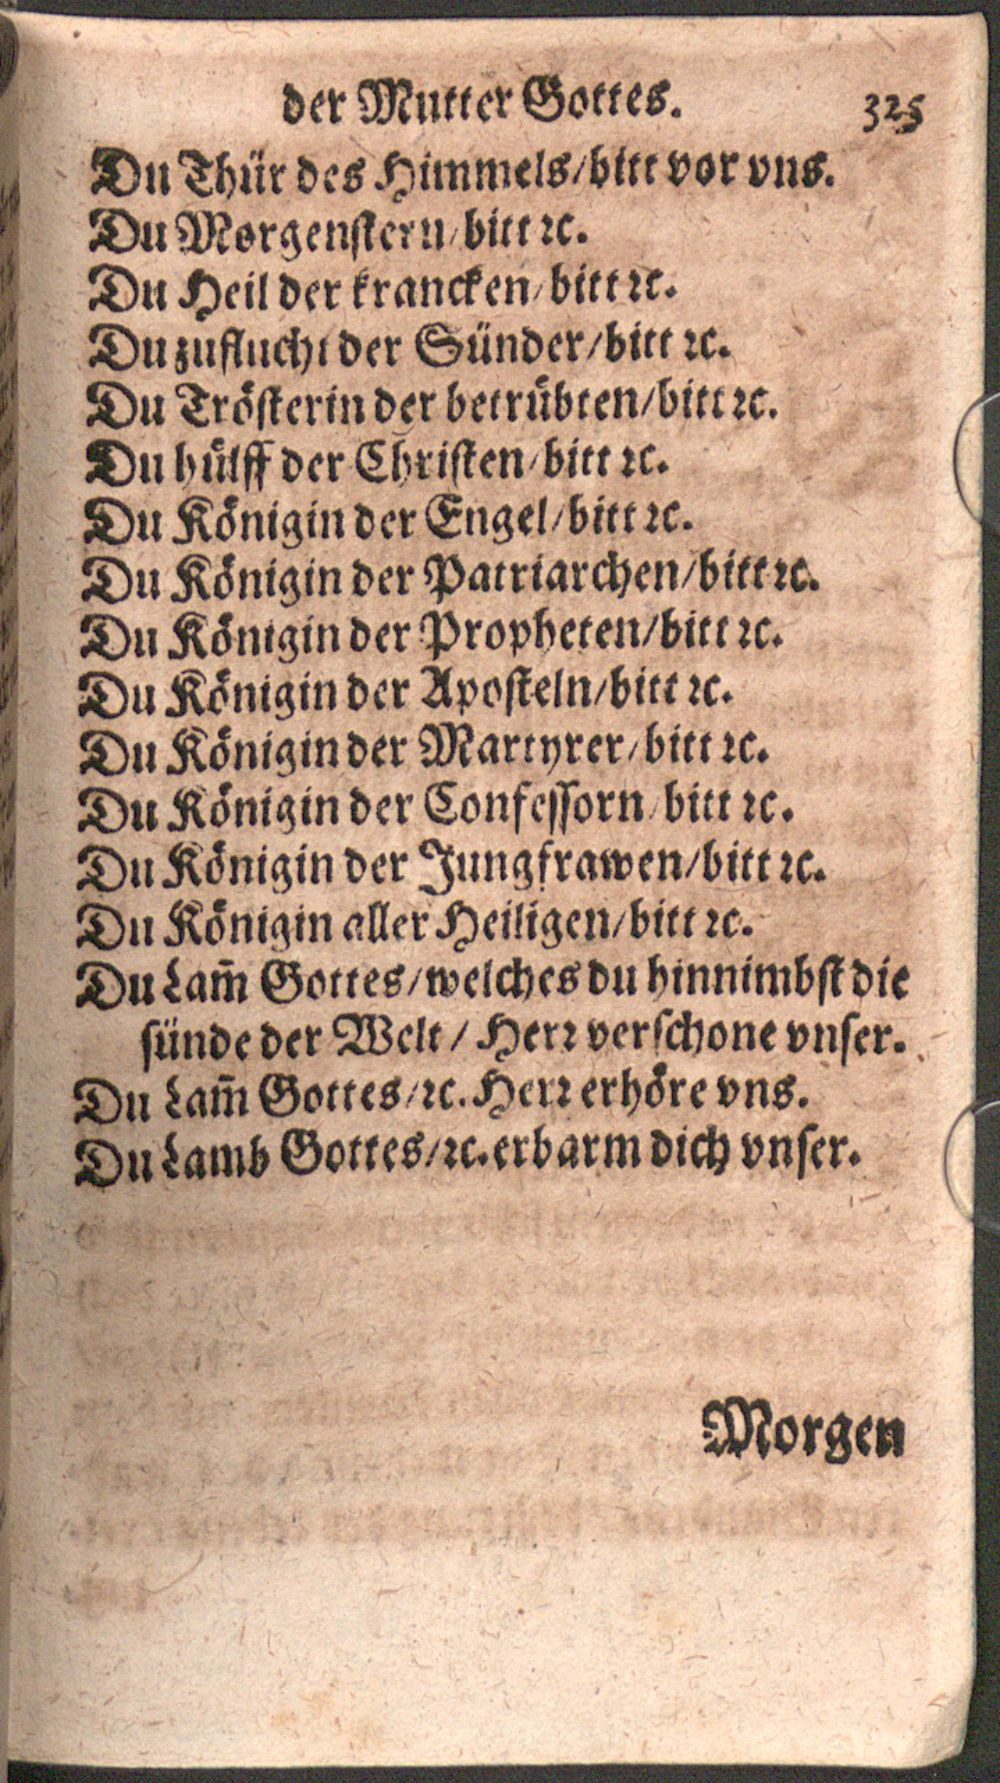 der Mutter Gottes. 325
Du Thür des Himmels/bitt vor vns.
Du Morgenstern/bitt ꝛc.
Du Heil der krancken/bitt ꝛc.
Du zuflucht der Sünder/bitt ꝛc.
Du Trösterin der betrübten/bitt ꝛc.
Du hülff der Christen/bitt ꝛc.
Du Königin der Engel/bitt ꝛc.
Du Königin der Patriarchen/bitt ꝛc.
Du Königin der Propheten/bitt ꝛc.
Du Königin der Aposteln/bitt ꝛc.
Du Königin der Martyrer/bitt ꝛc.
Du Königin der Confessorn/bitt ꝛc.
Du Königin der Jungfrawen/bitt ꝛc.
Du Königin aller Heiligen/bitt ꝛc.
Du Lam̃ Gottes/welches du hinnimbst die
sünde der Welt/ Herꝛ verschone vnser.
Du Lam̃ Gottes/ꝛc. Herꝛ erhöre vns.
Du Lamb Gottes/ꝛc. erbarm dich vnser.
Morgen